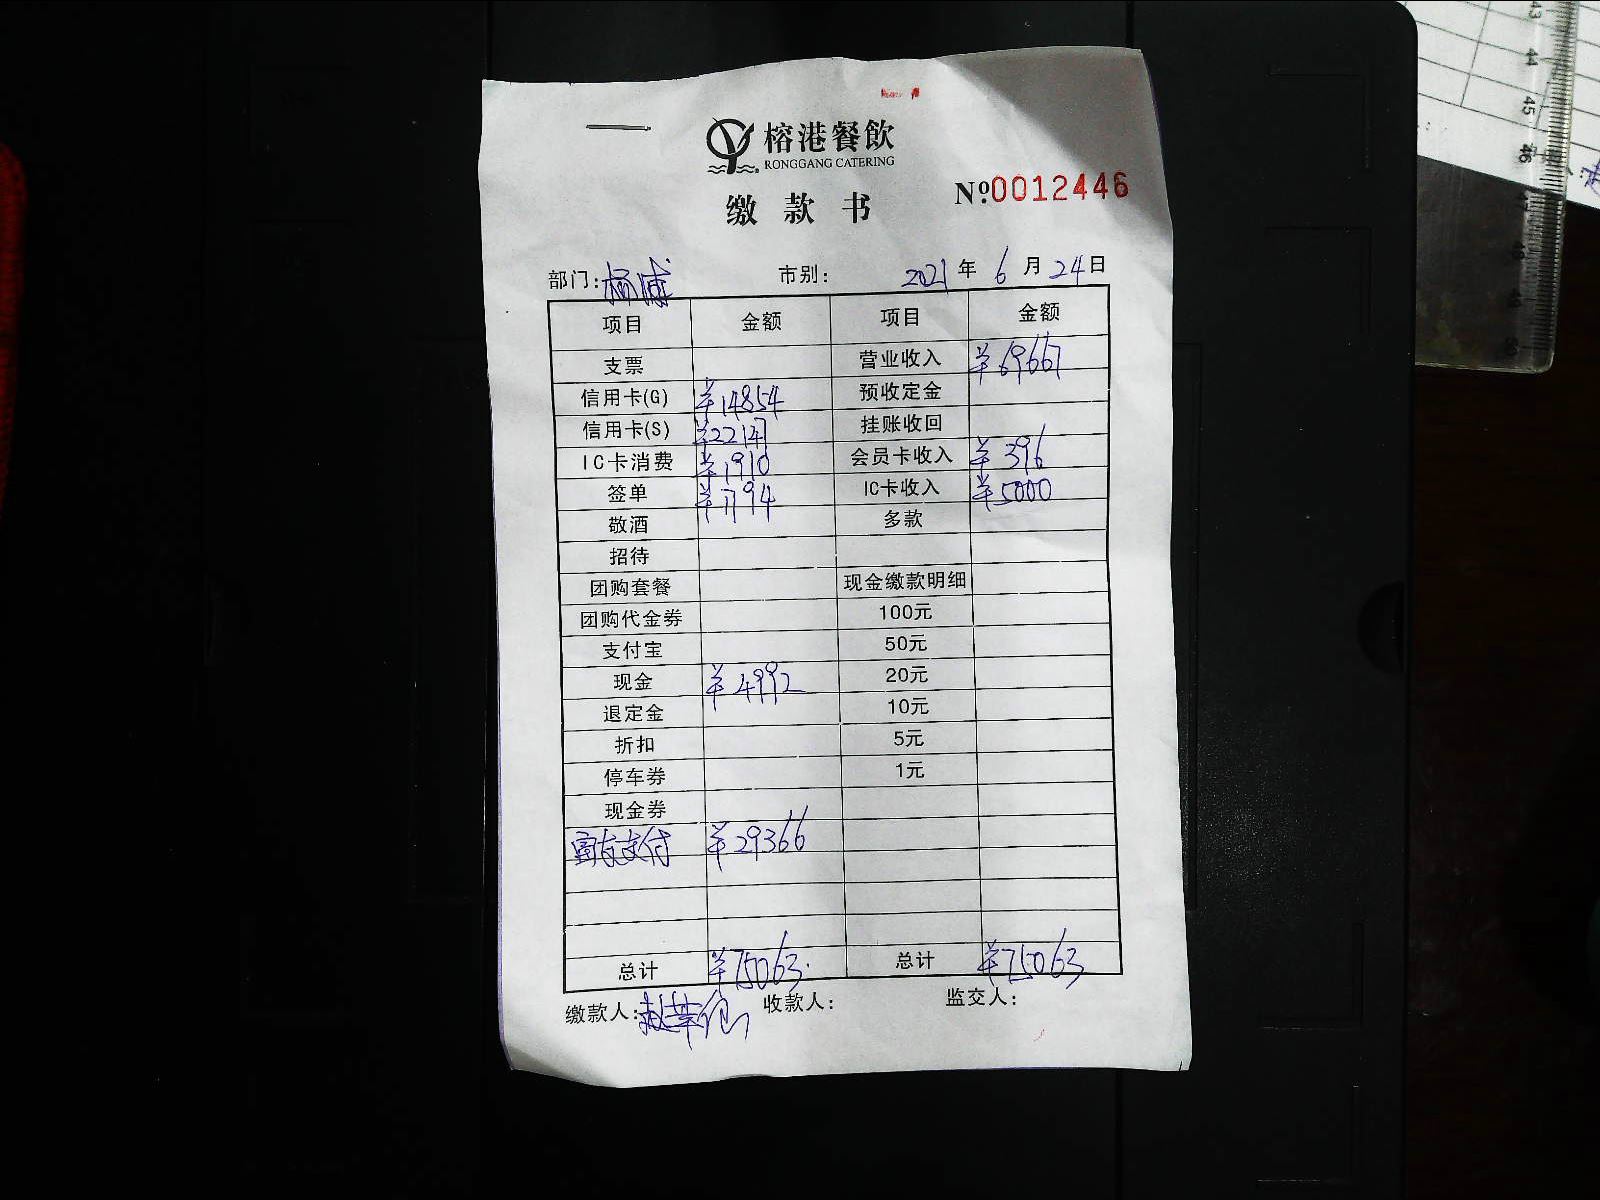 榕港餐飲
RONGGANG CATERING
缴款书
Nº:0012446
部门:杨浦 市别: 2021年6月24日
项目 金额 项目 金额
支票 营业收入 ¥69667
信用卡(G) ¥14854 预收定金
信用卡(S) ¥22147 挂账收回
IC卡消费 ¥1910 会员卡收入 ¥396
签单 ¥1794 IC卡收入 ¥5000
敬酒 多款
招待
团购套餐 现金缴款明细
团购代金券 100元
支付宝 50元
现金 ¥4992 20元
退定金 10元
折扣 5元
停车券 1元
现金券
富友支付 ¥29366
总计 ¥75063. 总计 ¥75063
缴款人: 收款人: 监交人:
43
44
45
46